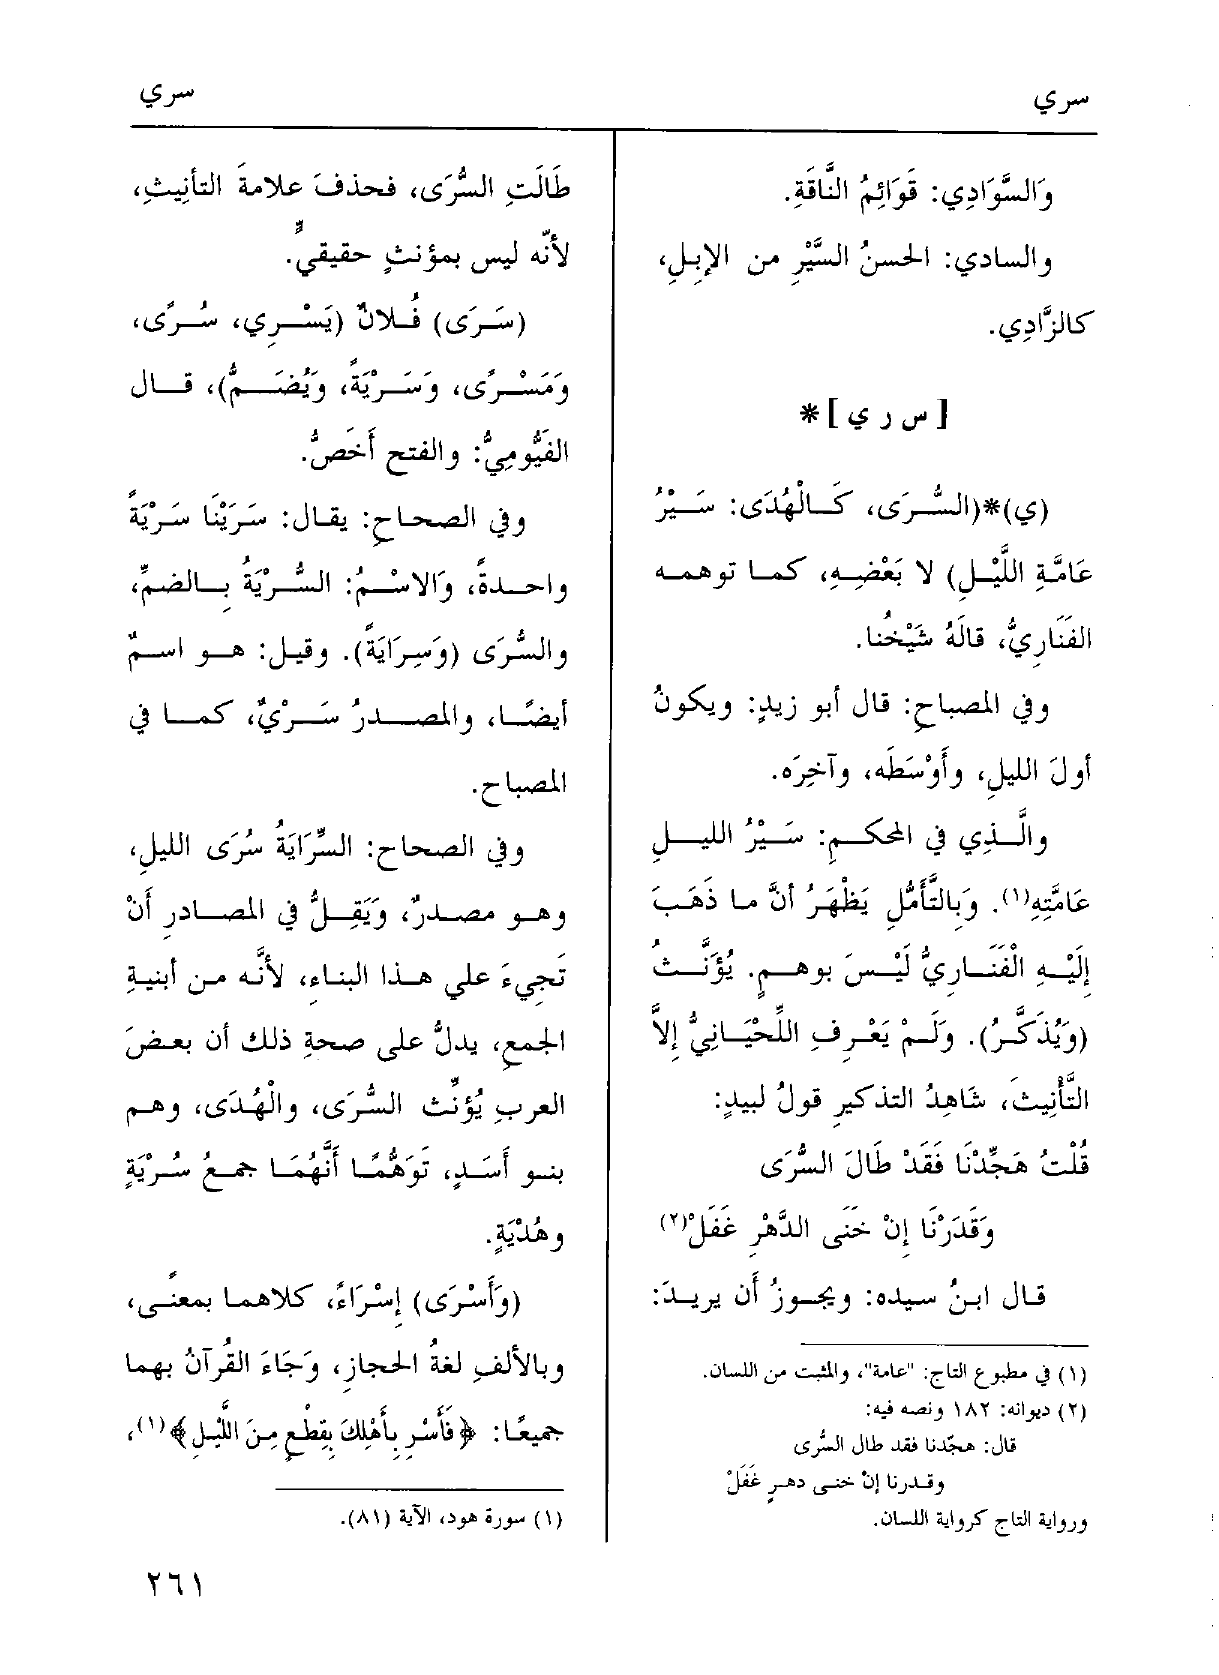 سري
سري
وَالسَّوَادِي: قَوَائِمُ النَّاقَةِ.
والسادي: الحسنُ السَّيْرِ من الإبِلِ،
كالزَّادِي.
[ س ر ي ] *
(ي)*(السُّرَى، كَالْهُدَى: سَيْرُ
عَامَّةِ اللَّيْلِ) لا بَعْضِهِ، كما توهمه
الفَنَارِيُّ، قالَهُ شَيْخُنا.
وفي المصباحِ: قال أبو زيدٍ: ويكونُ
أولَ الليلِ، وأَوْسَطَه، وآخِرَه.
والَّذِي في المحكمِ: سَيْرُ الليلِ
عَامَّتِهِ(١). وَبالتَّأَمُّلِ يَظْهَرُ أنَّ ما ذَهَبَ
إِلَيْهِ الْفَنَارِيُّ لَيْسَ بوهمٍ. يُؤَنَّثُ
(وَيُذَكَّرُ). وَلَمْ يَعْرِفِ اللِّحْيَانِيُّ إلاَّ
التَّأْنِيثَ، شاهِدُ التذكيرِ قولُ لبيدٍ:
قُلْتُ هَجِّدْنَا فَقَدْ طَالَ السُّرَى
وَقَدَرْنَا إِنْ خَنَى الدَّهْرِ غَفَلْ(٢)
قال ابنُ سيده: ويجوزُ أن يريدَ:
(١) في مطبوع التاج: "عامة"، والمثبت من اللسان.
(٢) ديوانه: ١٨٢ ونصه فيه:
قال: هجّدنا فقد طال السُّرى
وقدرنا إنْ خنى دهرٍ غَفَلْ
ورواية التاج كرواية اللسان.
طَالَتِ السُّرَى، فحذفَ علامةَ التأنِيثِ،
لأنّه ليس بمؤنثٍ حقيقيٍّ.
(سَرَى) فُلانٌ (يَسْرِي، سُرًى،
وَمَسْرًى، وَسَرْيَةً، وَيُضَمُّ)، قال
الفَيُّومِيُّ: والفتح أَخَصُّ.
وفي الصحاحِ: يقال: سَرَيْنَا سَرْيَةً
واحدةً، وَالاسْمُ: السُّرْيَةُ بالضمِّ،
والسُّرَى (وَسِرَايَةً). وقيل: هو اسمٌ
أيضًا، والمصدرُ سَرْيٌ، كما في
المصباح.
وفي الصحاح: السِّرَايَةُ سُرَى الليلِ،
وهو مصدرٌ، وَيَقِلُّ في المصادرِ أنْ
تَجِيءَ على هذا البناءِ، لأنَّه من أبنيةِ
الجمعِ، يدلُّ على صحةِ ذلك أن بعضَ
العربِ يُؤنِّث السُّرَى، والْهُدَى، وهم
بنو أَسَدٍ، تَوَهُّمًا أَنَّهُمَا جمعُ سُرْيَةٍ
وهُدْيَةٍ.
(وَأَسْرَى) إِسْرَاءً، كلاهما بمعنًى،
وبالألفِ لغةُ الحجازِ، وَجَاءَ القُرآنُ بهما
جميعًا: ﴿فَأَسْرِ بِأَهْلِكَ بِقِطْعٍ مِنَ اللَّيْلِ﴾(١)،
(١) سورة هود، الآية (٨١).
٢٦١